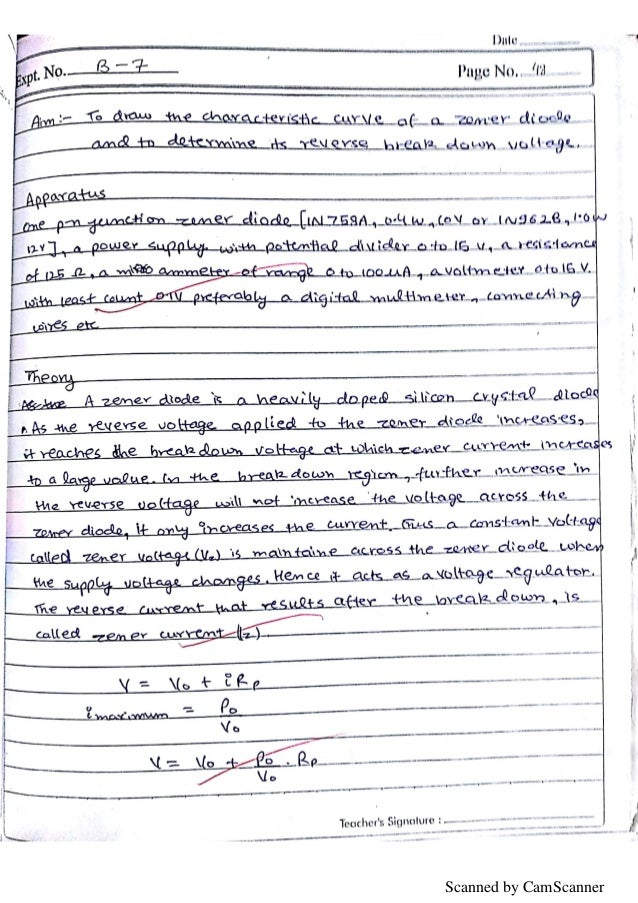 Date
Expt. No. B-7
Page No. 42
Aim:- To draw the characteristic curve of a zener diode
and to determine its reverse break down voltage.
Apparatus
one pn junction zener diode [IN759A, 0.4W, 10V or IN962B, 1.0W
12V], a power supply with potential divider 0 to 15 V, a resistance
of 125 Ω, a micro ammeter of range 0 to 100μA, a voltmeter 0 to 15 V.
with least count 0.1V preferably a digital multimeter, connecting
wires etc
Theory
A zener diode is a heavily doped silicon crystal diode
As the reverse voltage applied to the zener diode increases,
it reaches the breakdown voltage at which zener current increases
to a large value. In the break down region, further increase in
the reverse voltage will not increase the voltage across the
zener diode, it only increases the current. Thus a constant voltage
called zener voltage (V₀) is maintaine across the zener diode when
the supply voltage changes. Hence it acts as a voltage regulator.
The reverse current that results after the break down, is
called zener current (Iz)
V = V₀ + iRp
i maximum = P₀/V₀
V = V₀ + P₀/V₀ . Rp
Teacher's Signature :
Scanned by CamScanner